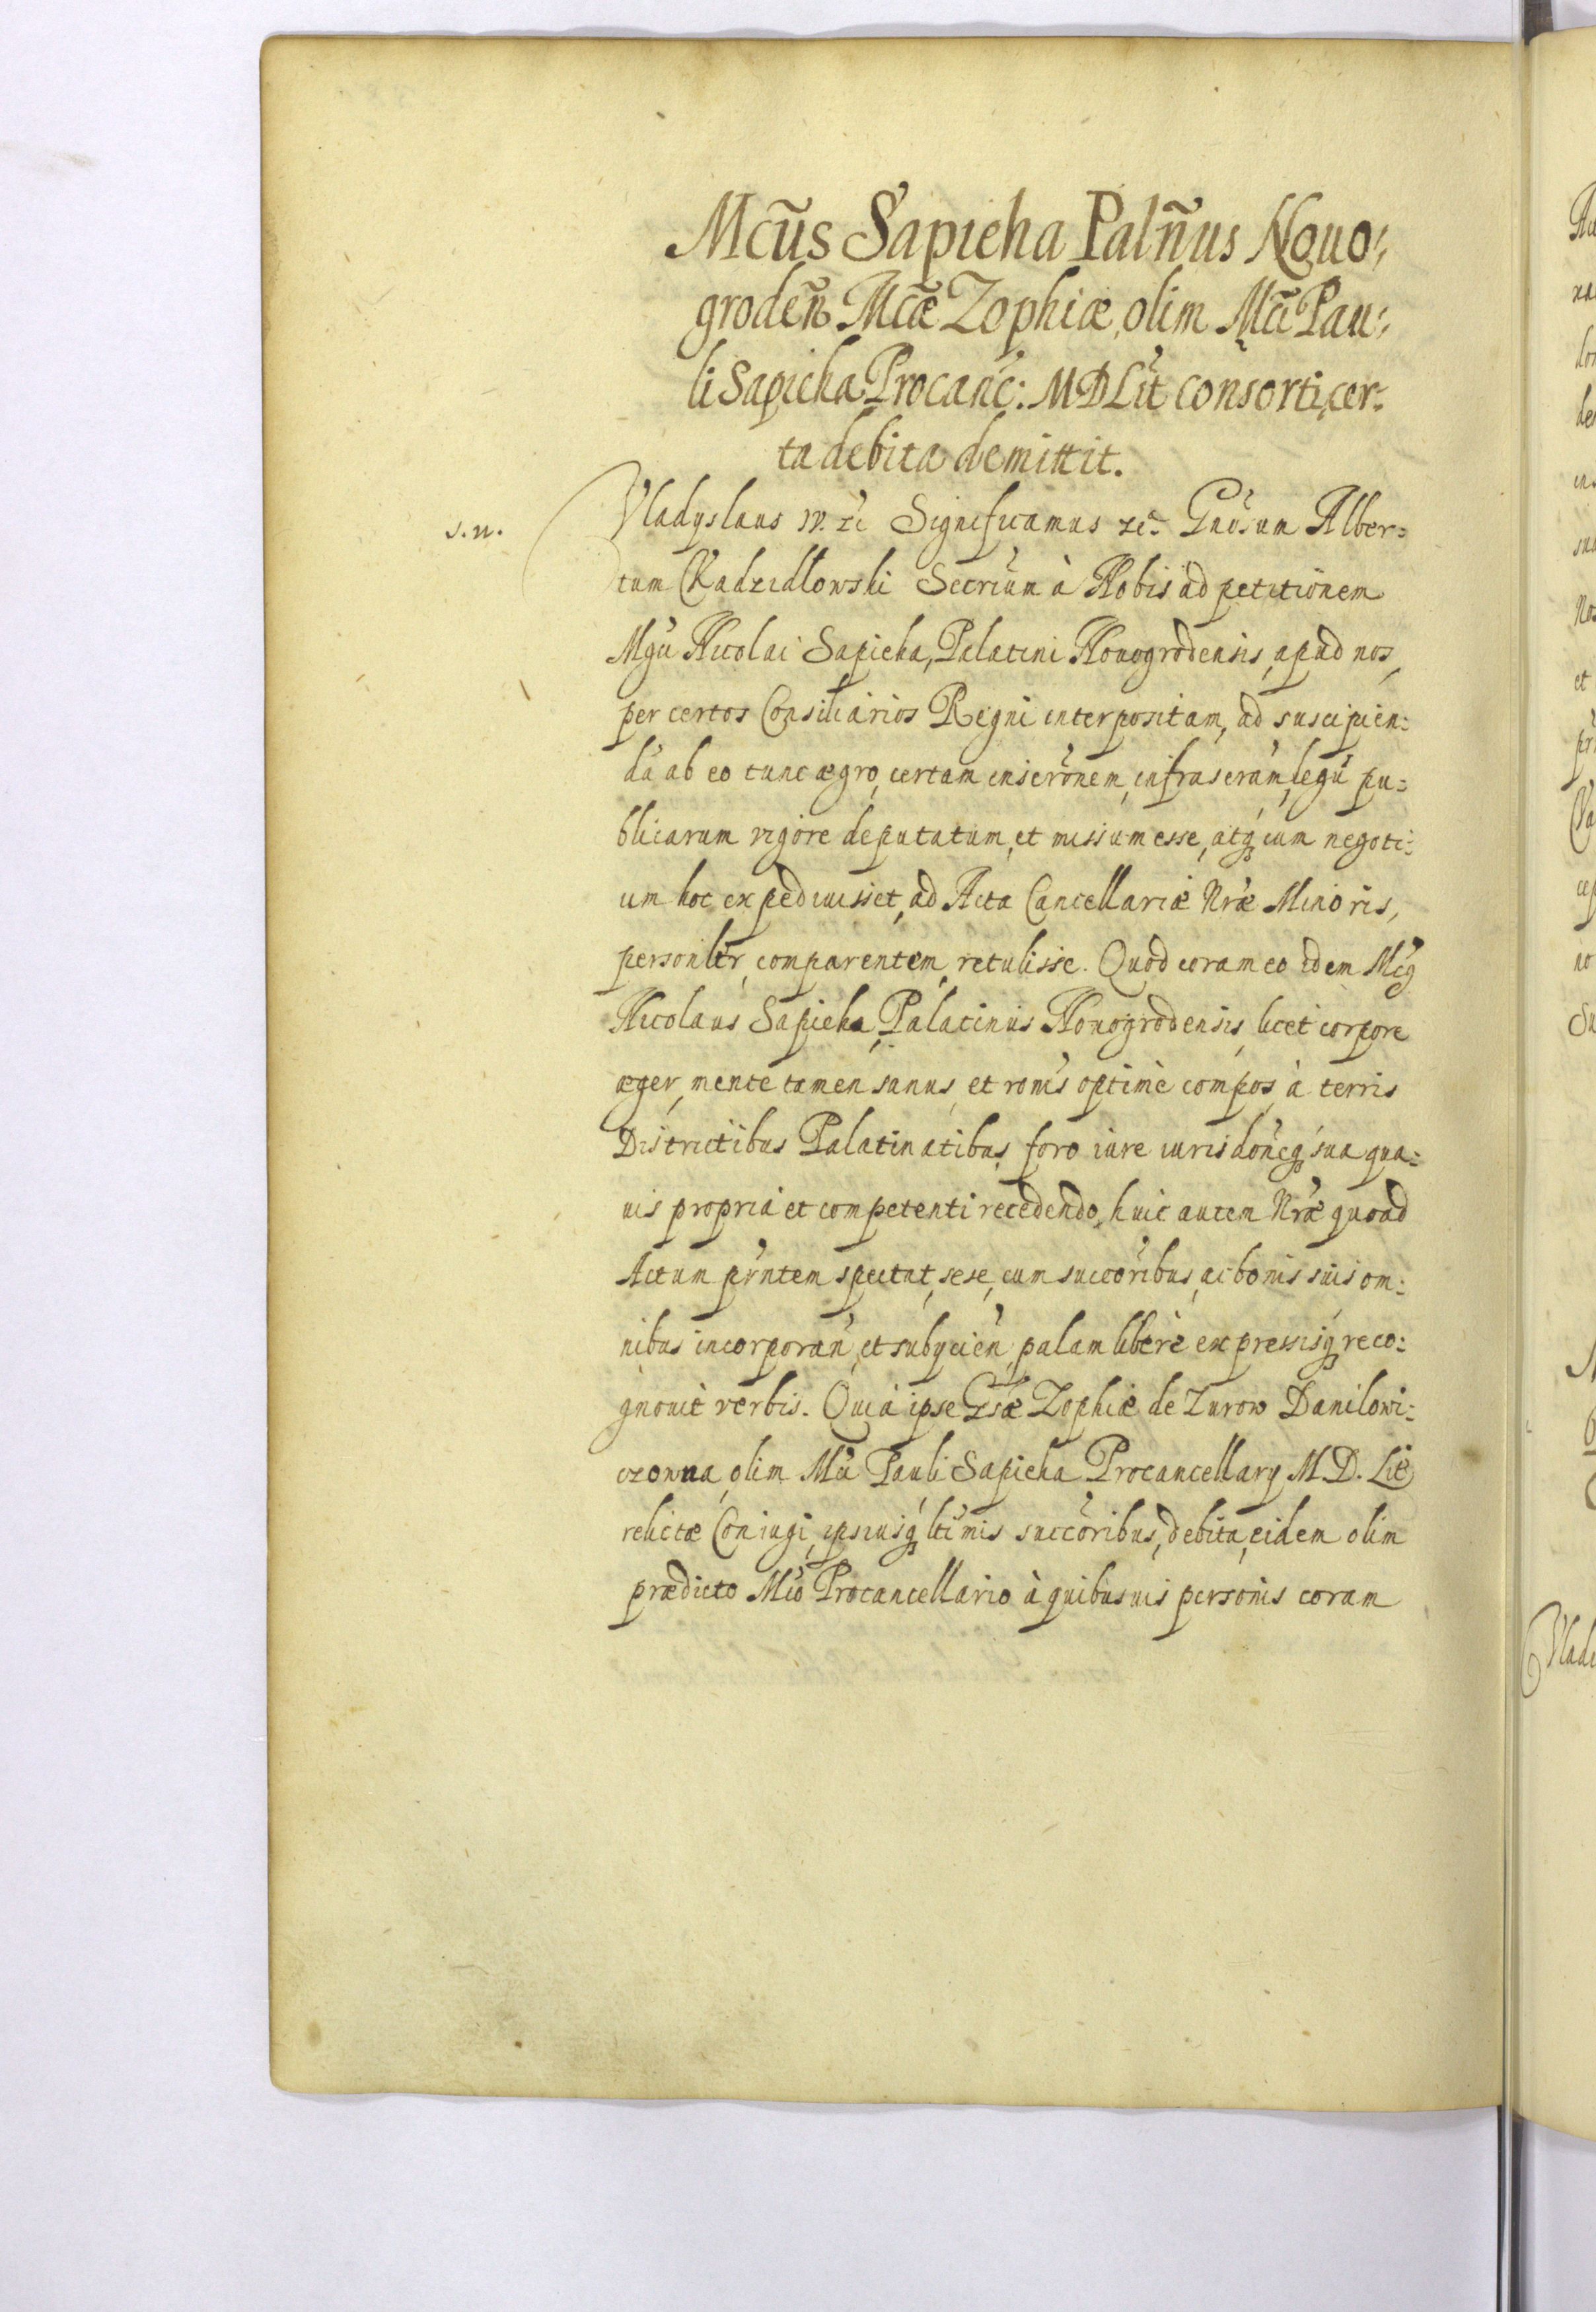 Mcũs Sapieha Palñus Nouo:
grodeñ Mcæ̃ Zophiæ, olim Mci Pau:
li Sapieha Procanc: MDLit consorti, cer:
ta debita demittit.
s. n.
Vladyslaus IV. etc Significamus etc Gnosum Alber:
tum Kadzidłowski Secrium à Nobis ad petitionem
Mgci Nicolai Sapieha, Palatini Nouogrodensis, apud nos,
per certos Consiliarios Regni interpositam, ad suscipien:
da ab eo tunc ægro, certam inscronem, infrascram, legu pu:
blicarum vigore deputatum, et missum esse, atq cum negoti:
um hoc expediuisset, ad Acta Cancellariæ Nræ Minoris,
personler, comparentem, retulisse. Quod coram eo idem Mcg
Nicolaus Sapieha, Palatinus Nouogrodensis, licet corpore
æger, mente tamen sanus, et ronis optimè compos, à terris
Districtibus Palatinatibus, foro iure iurisdoneq sua qua:
uis propria et competenti recedendo, huic autem Nræ quoad
Actum prntem spectat, sese, cum succoribus, ac bonis suis om:
nibus incorporan, et subycien, palam liberè expressisq reco:
gnouit verbis. Quia ipse Gsæ Zophiæ de Zurow Danilowi:
czowna, olim Mci Pauli Sapieha Procancellary M.D. Lit
relictæ Coniugi, ipsiusq ltimis succoribus, debita, eidem olim
prædicto Mco Procancellario à quibusuis personis coram